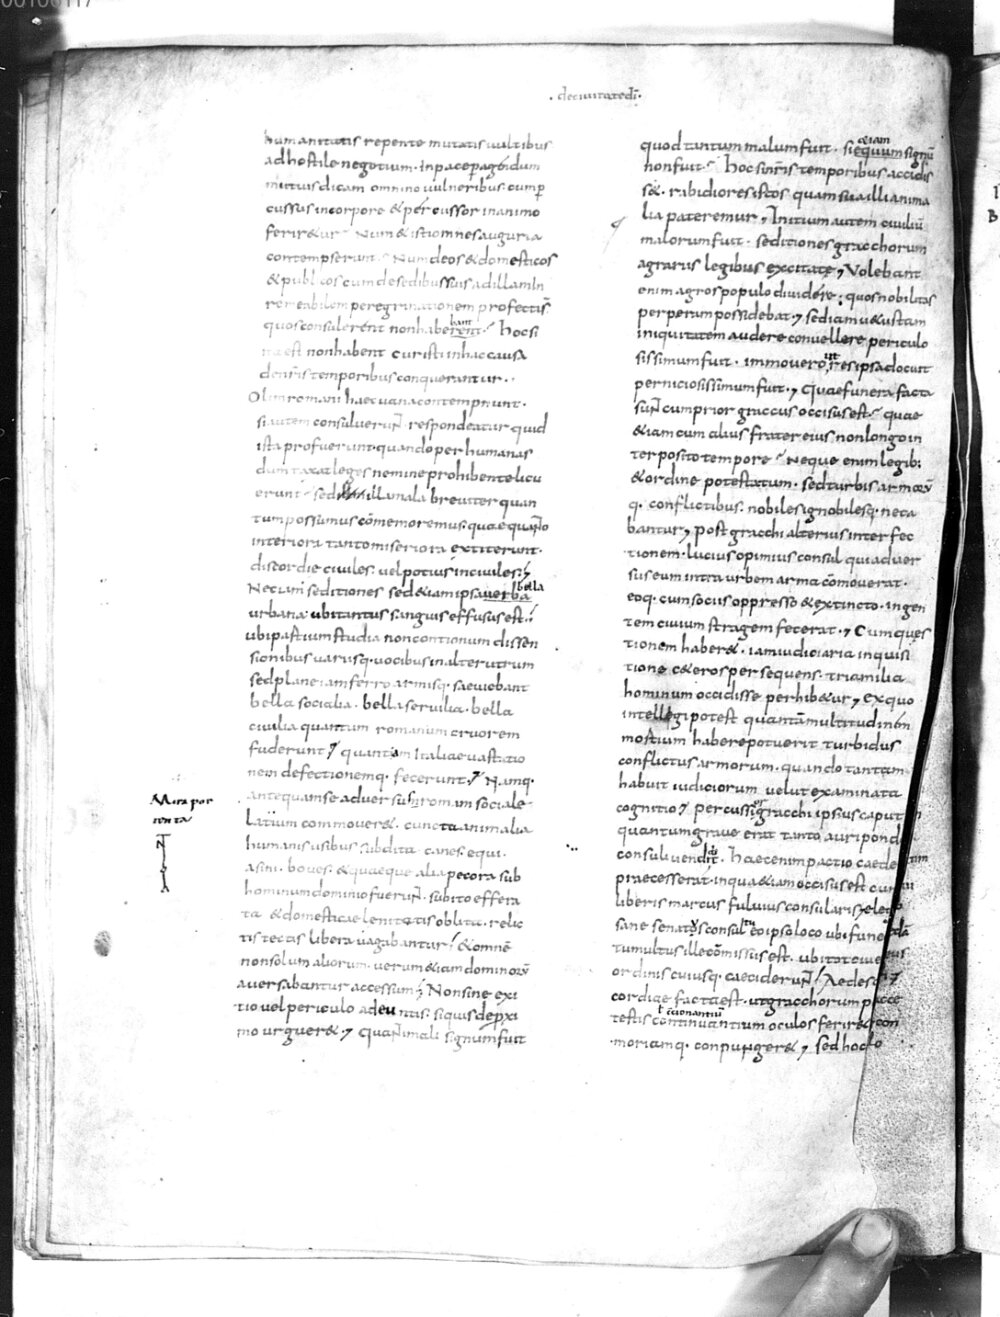 00106117
· deciuitatedī ·
humanitatis repente mutatis uultibus
adhostilenegotium · Inpacepagoidum
mutuisdicam omnino uulneribus cump
cussus incorpore & percussor inanimo
ferir&ur · Num & istiomnesauguria
contempserunt · Numdeos & domesticos
& publicos cumdesedibussuis adillamin
remeabilem peregrinationem profectis
quosconsulerent nonhaberent · hocsi
bant
itaest nonhabent curistiinhaccausa
denr̄istemporibusconquerantur · ·
Olimromani haecuanacontempnunt ·
siautem consulueruɴ̄ respondeatur quid
ista profuerunt · quandoper humanas
dumtaxatleges nemineprohibentelicu
erunt · sed illamala breuiterquan
tumpossumus cōmemoremus · quaequanto
interiora tantomiseriora extiterunt ·
discordie ciuiles · uelpotius inciuiles ·
Necium seditiones sed&iamipsauerba
bella
urbana ubitantus sanguis effususest ·
ubipartiumstudia noncontionum dissen
sionibus uariisq · uocibusinalterutrum
sedplaneiamferro armisq · saeuiebant
bella socialia · bellaseruilia · bella
ciuilia quantum romanum cruorem
fuderunt quantam Italiaeuastatio
nem defectionemq · fecerunt Namq ·
antequamse aduersumromam sociale
Latium commouer& · cuncta animalia
humanisusibus subdita · canes · equi ·
asini · boues · & quaeque aliapecora sub
hominumdominiofueruɴ̄ · subito effera
ta & domesticaelenitatis oblita · relic
tistectis libera uagabantur · & omnē
nonsolum aliorum · uerum&iam dominorꝝ
auersabantur accessum · Nonsine exi
tio uel periculo adeuntis · siquisdepxi
mo urguer& · Quantimali signumfuit
Mira por
tenta
quod tantum malumfuit · siequumsignū
&iam
nonfuit · hoc sinr̄is temporibus accidis
s& · rabidioresistos quamsuaillianima
lia pateremur · Initium autem ciuiliū
malorumfuit · seditionesgracchorum
agrariis legibus excitatę · Volebant
enim agrospopulo diuidere · quosnobilitas
perperampossidebat · sediamu&ustam
iniquitatemaudere conuellere periculo
sissimumfuit · immouero resipsadocuit
ut
perniciosissimumfuit · Quaefunera facta
suɴ̄ cumprior graccus occisusest · quae
&iamcum alius frater eius nonlongoin
terpositotempore · Neque enimlegib;
& ordine potestatum · sedturbis armorꝝ
q · conflictibus · nobilesignobilesq · neca
bantur · postgracchialterius interfec
tionem · lucius opimius consul quiaduer
suseum intraurbem arma cōmouerat ·
eoq · cumsociis oppresso & extincto · ingen
tem ciuium stragem fecerat · Cumques
tionem haber& · iamiudiciaria inquisi
tione c&erospersequens · triamilia
hominum occidisse perhib&ur · Exquo
intellegipotest quantāmultitudinem
mortium haberepotuerit turbidus
conflictus armorum · quandotantam
habuit iudiciorum uelut examinata
cognitio · percussor gracchi ipsiuscaput
quantumgraue erat tanto auripond
consuliuendit · haecenimpactio caede
praecesserat · inqua&iamoccisusest cum
liberis marcus fuluius consularis · eleg
sane senatus consulto eoipsoloco ubifune
tumultus illecōmissusest · ubitotciue
ordinis cuiusq · caecideruɴ̄ · Aedes
cordiae factaest · utgracchorum p
testis continuantium oculos ferir& con
ł ccionantiū
moriamq · conpunger& · sed hoc